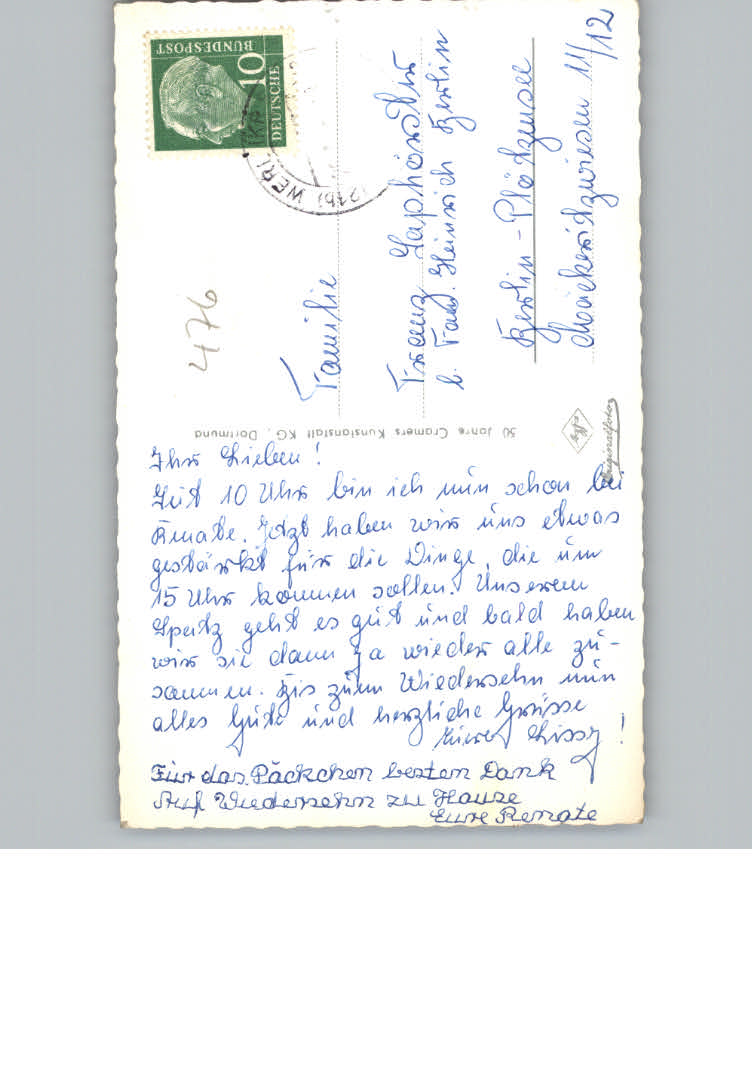 Ihr Lieben!
Seit 10 Uhr bin ich nun schon bei
Renate. Jetzt haben wir uns etwas
gestärkt für die Dinge, die um
15 Uhr kommen sollen. Unserem
Spatz geht es gut und bald haben
wir sie dann ja wieder alle zu-
sammen. Bis zum Wiedersehn nun
alles Gute und herzliche Grüsse
Eure Lissy!
Für das Päckchen besten Dank
Auf Wiedersehn zu Hause
Eure Renate
50 Jahre Cramers Kunstanstalt KG, Dortmund
Agfa
Originalfoto
Familie
Franz
b. Fam. Heinrich Berlin
Berlin-Plötzensee
11/12
476
DEUTSCHE
BUNDESPOST
10
(21b) WERL